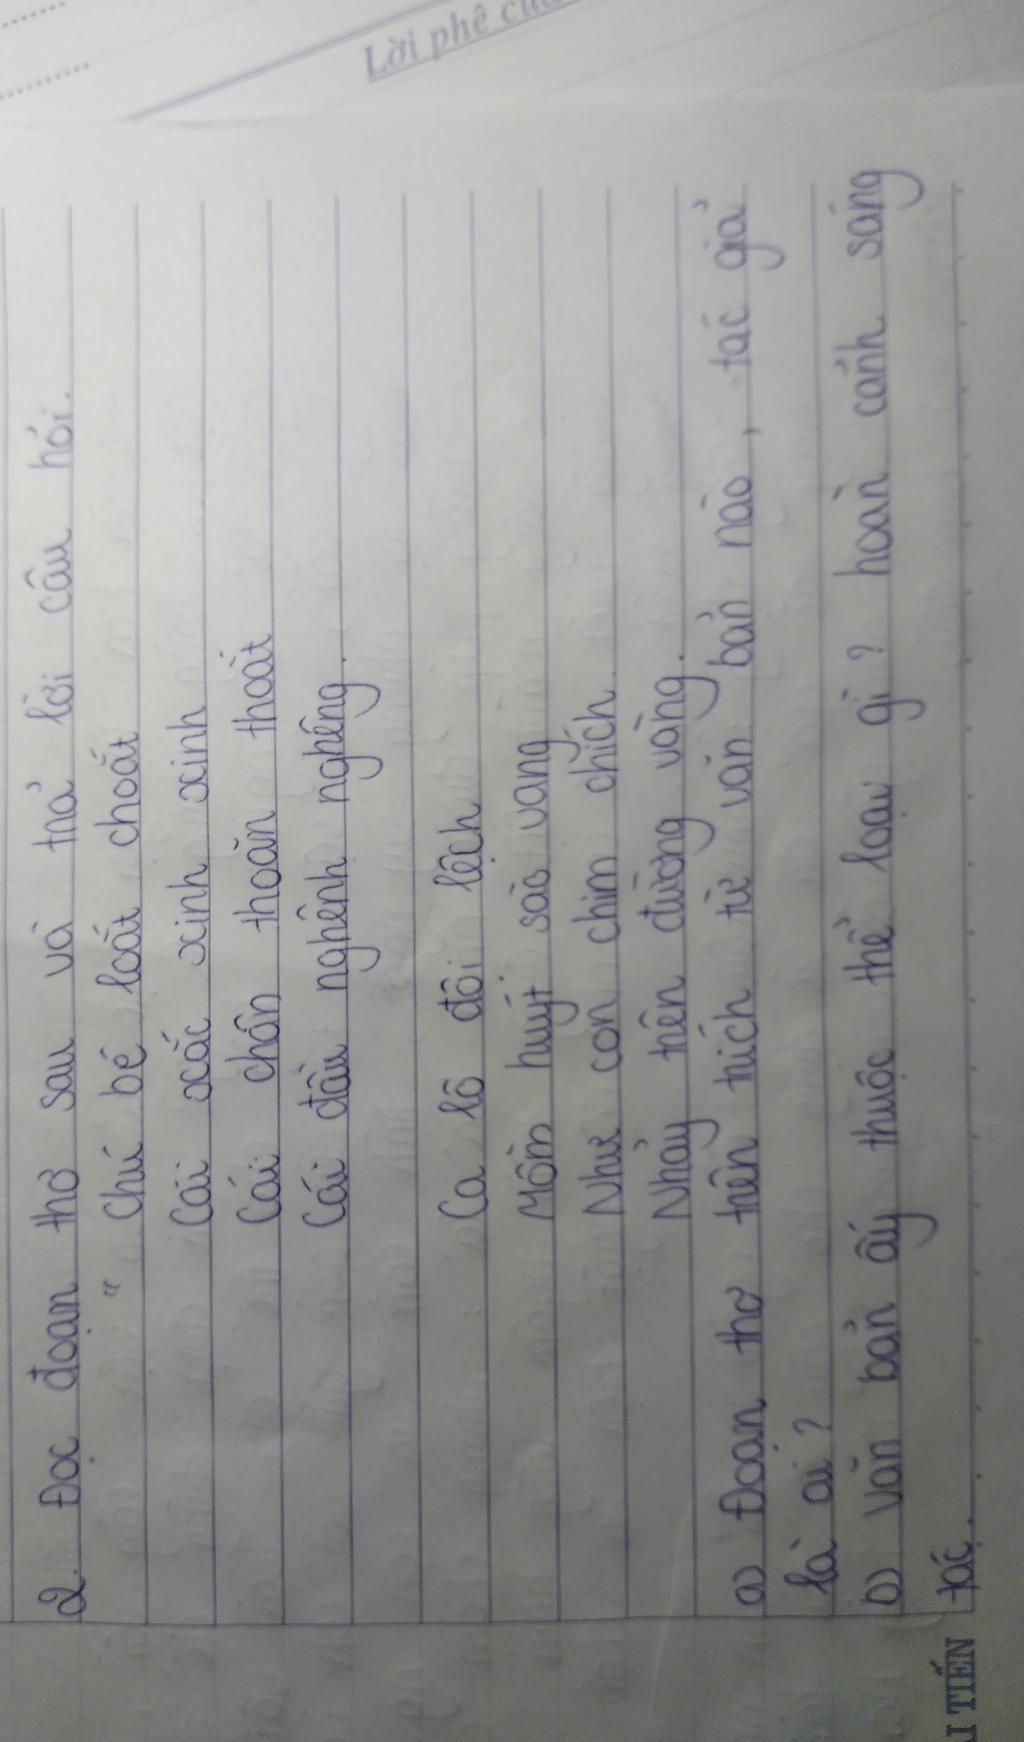 Lời phê của
2. Đọc đoạn thơ sau và trả lời câu hỏi.
" Chú bé loắt choắt
Cái xắc xinh xinh
Cái chân thoăn thoắt
Cái đầu nghênh nghênh.
Ca lô đội lệch
Mồm huýt sáo vang
Như con chim chích
Nhảy trên đường vàng.
a) Đoạn thơ trên trích từ văn bản nào, tác giả
là ai?
b) Văn bản ấy thuộc thể loại gì? hoàn cảnh sáng
tác.
I TIẾN